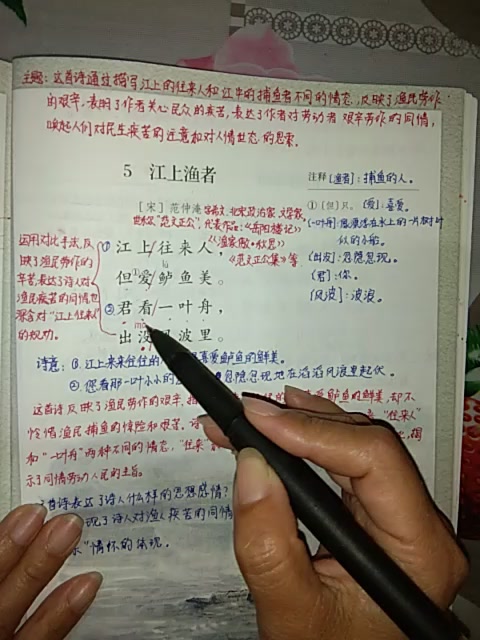 主题：这首诗通过描写江上的往来人和江中的捕鱼者不同的情态，反映了渔民劳作
的艰辛，表明了作者关心民众的疾苦，表达了作者对劳动者艰辛劳作的同情，
唤起人们对民生疾苦的注意和对人情世态的思索。
5 江上渔者
[宋] 范仲淹
字希文，北宋政治家、文学家，
世称“范文正公”，代表作品：《岳阳楼记》
《渔家傲·秋思》
《范文正公集》等
①江上/往来人，
但①爱/鲈鱼美。
②君看/一叶舟，
出没风波里。
注释[渔者]：捕鱼的人。
①〔但〕只。[爱]：喜爱。
[一叶舟]：像漂浮在水上的一片树叶
似的小船。
[出没]：忽隐忽现。
[君]：你。
[风波]：波浪。
运用对比手法，反
映了渔民劳作的
辛苦，表达了诗人对
渔民疾苦的同情，也
深含对“江上往来人”
的规劝。
诗意：①江上来来往往的喜爱鲈鱼的鲜美。
②您看那一叶小小的忽隐忽现地在滔滔风浪里起伏。
这首诗反映了渔民劳作的艰辛，的鲈鱼的鲜美，却不
怜惜渔民捕鱼的惊险和艰苦，“往来人”
和“一叶舟”两种不同的情态，“往来”
示了同情劳动人民的主旨。
首诗表达了诗人什么样的思想感情？
现了诗人对渔人疾苦的同情
”情怀的体现。